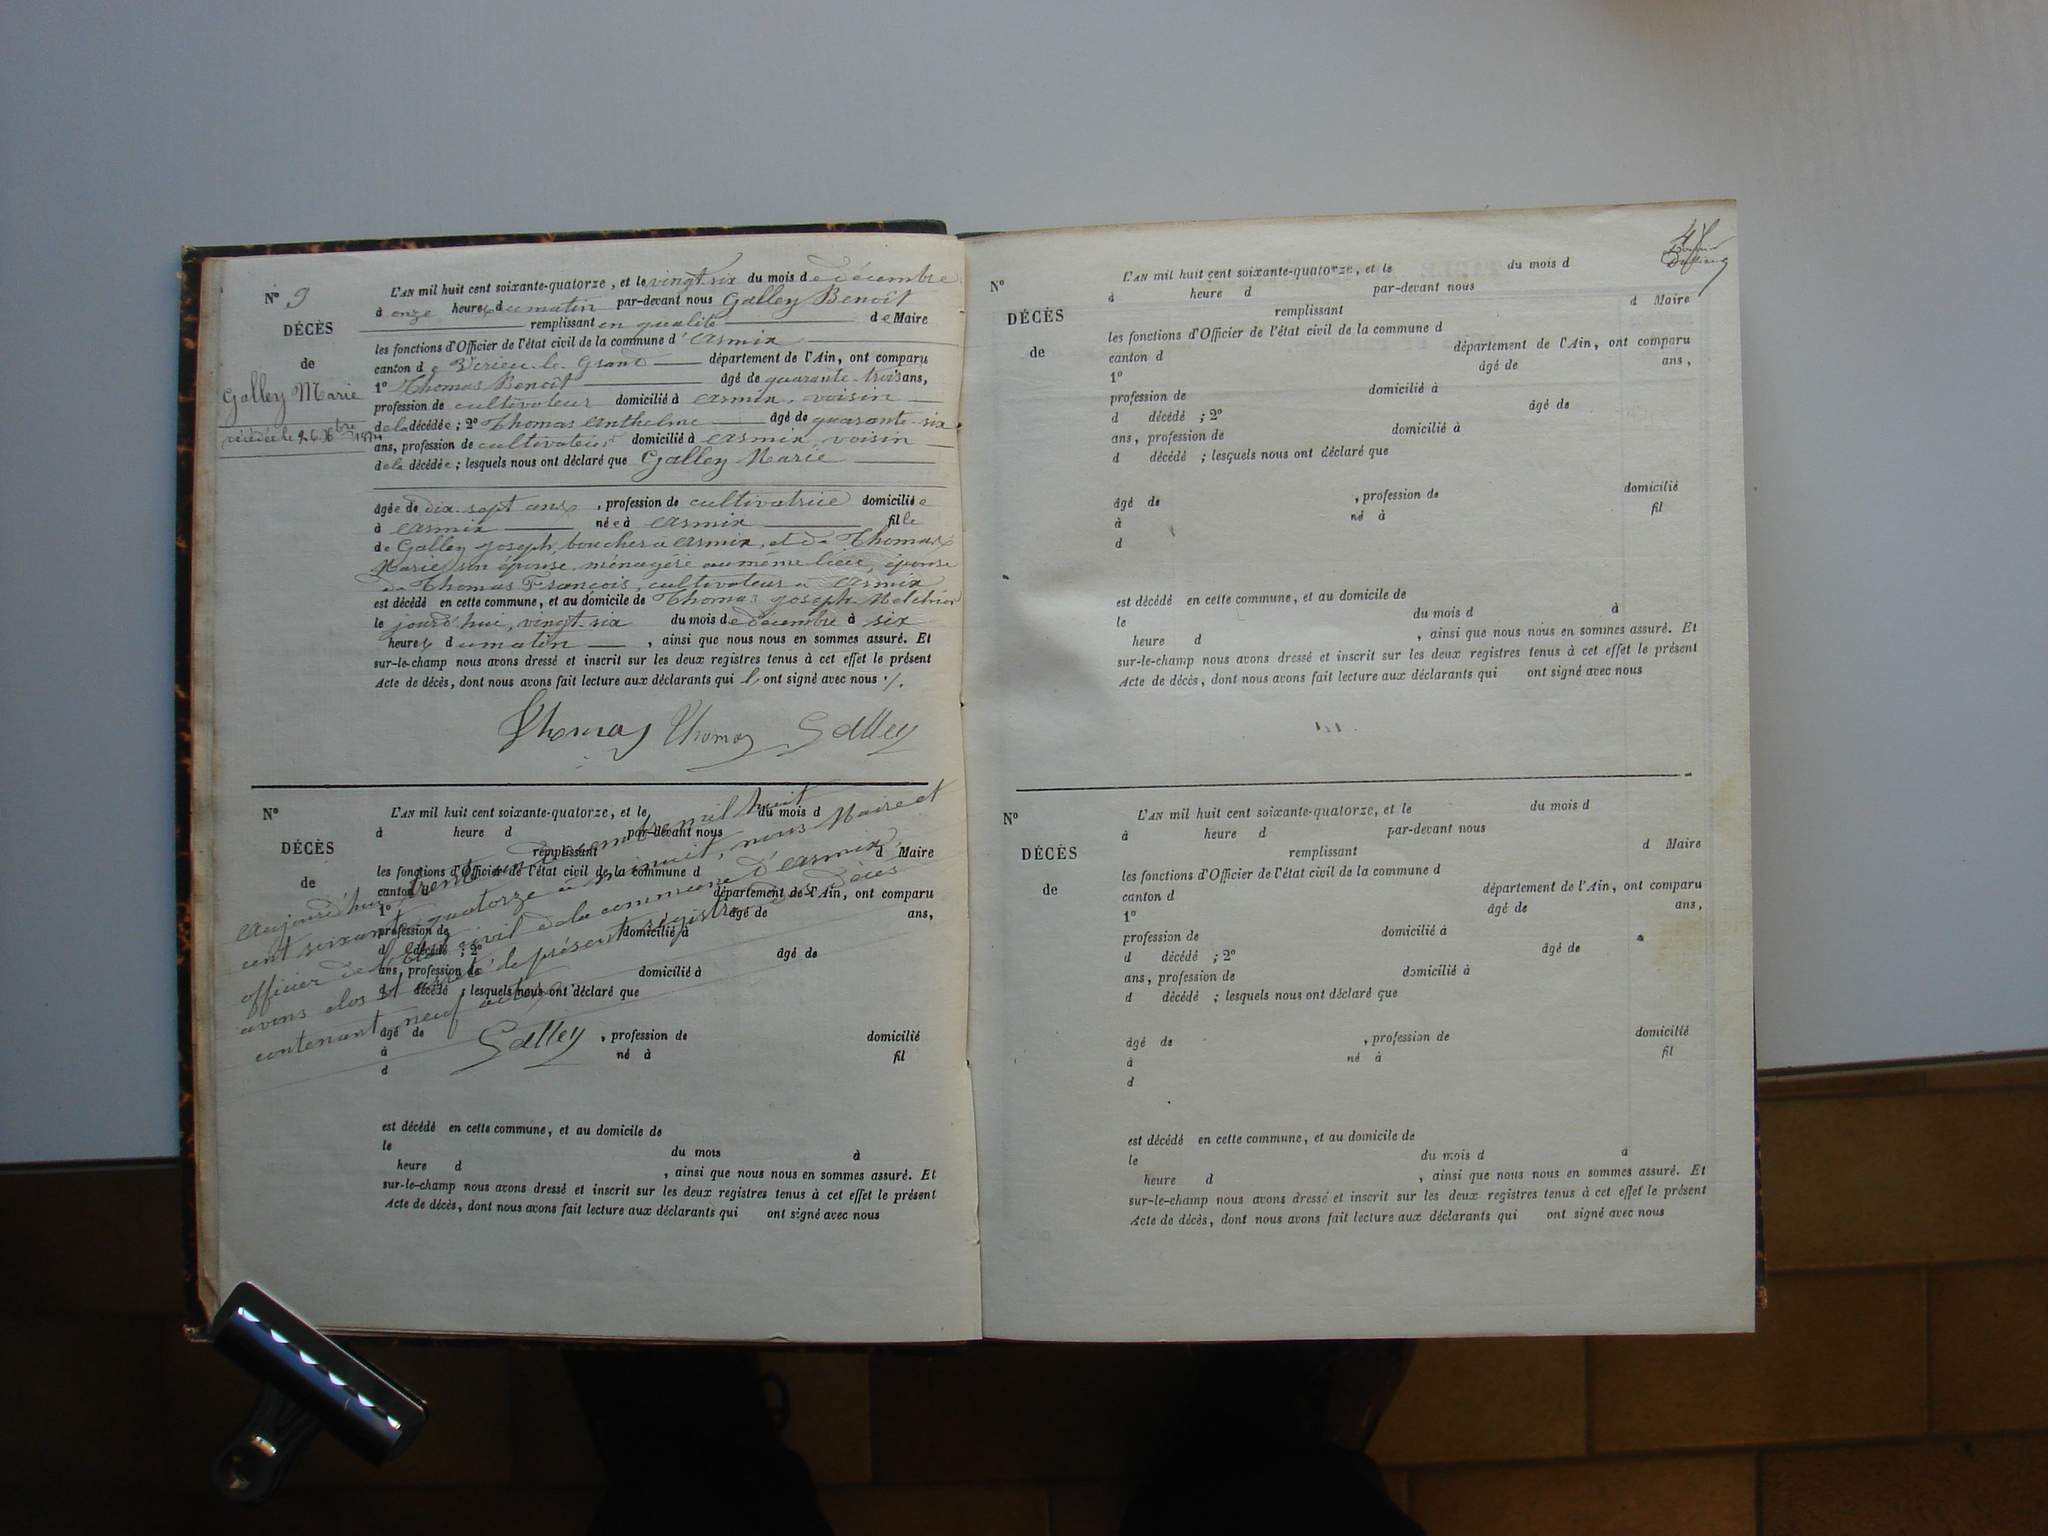 N° 9
DÉCÈS
de
Galley Marie
décédée le 26 Xbre 1874
L'AN mil huit cent soixante-quatorze, et le vingt-six du mois de décembre
à onze heures du matin par-devant nous Galley Benoît
remplissant en qualité de Maire
les fonctions d'Officier de l'état civil de la commune d'Armix
canton de Virieu-le-Grand département de l'Ain, ont comparu
1° Thomas Benoît âgé de quarante-trois ans,
profession de cultivateur domicilié à Armix, voisin
de la décédée ; 2° Thomas Anthelme âgé de quarante-six
ans, profession de cultivateur domicilié à Armix, voisin
de la décédée ; lesquels nous ont déclaré que Galley Marie
âgée de dix-sept ans, profession de cultivatrice domiciliée
à Armix née à Armix fille
de Galley Joseph, boucher à Armix, et de Thomas
Marie son épouse, ménagère au même lieu, épouse
de Thomas François, cultivateur à Armix
est décédé en cette commune, et au domicile de Thomas Joseph Melchior
le jourd'hui, vingt-six du mois de décembre à six
heures du matin, ainsi que nous nous en sommes assuré. Et
sur-le-champ nous avons dressé et inscrit sur les deux registres tenus à cet effet le présent
Acte de décès, dont nous avons fait lecture aux déclarants qui ont signé avec nous ./.
Thomas Thomas Galley
N°
DÉCÈS
de
L'AN mil huit cent soixante-quatorze, et le du mois d
à heure d par-devant nous
remplissant d Maire
les fonctions d'Officier de l'état civil de la commune d
canton d département de l'Ain, ont comparu
1° âgé de ans,
profession de domicilié à
d décédé ; 2° âgé de
ans, profession de domicilié à
d décédé ; lesquels nous ont déclaré que
âgé de , profession de domicilié
à né à fil
d
est décédé en cette commune, et au domicile de
le du mois à
heure d , ainsi que nous nous en sommes assuré. Et
sur-le-champ nous avons dressé et inscrit sur les deux registres tenus à cet effet le présent
Acte de décès, dont nous avons fait lecture aux déclarants qui ont signé avec nous
Aujourd'hui trente un décembre mil huit
cent soixante quatorze à minuit, nous Maire et
officier de l'état civil de la commune d'Armix,
avons clos et arrêté le présent registre des décès
contenant neuf actes
Galley
N°
DÉCÈS
de
L'AN mil huit cent soixante-quatorze, et le du mois d
à heure d par-devant nous
remplissant d Maire
les fonctions d'Officier de l'état civil de la commune d
canton d département de l'Ain, ont comparu
1° âgé de ans,
profession de domicilié à
d décédé ; 2° âgé de
ans, profession de domicilié à
d décédé ; lesquels nous ont déclaré que
âgé de , profession de domicilié
à né à fil
d
est décédé en cette commune, et au domicile de
le du mois d à
heure d , ainsi que nous nous en sommes assuré. Et
sur-le-champ nous avons dressé et inscrit sur les deux registres tenus à cet effet le présent
Acte de décès, dont nous avons fait lecture aux déclarants qui ont signé avec nous
N°
DÉCÈS
de
L'AN mil huit cent soixante-quatorze, et le du mois d
à heure d par-devant nous
remplissant d Maire
les fonctions d'Officier de l'état civil de la commune d
canton d département de l'Ain, ont comparu
1° âgé de ans,
profession de domicilié à
d décédé ; 2° âgé de
ans, profession de domicilié à
d décédé ; lesquels nous ont déclaré que
âgé de , profession de domicilié
à né à fil
d
est décédé en cette commune, et au domicile de
le du mois d à
heure d , ainsi que nous nous en sommes assuré. Et
sur-le-champ nous avons dressé et inscrit sur les deux registres tenus à cet effet le présent
Acte de décès, dont nous avons fait lecture aux déclarants qui ont signé avec nous